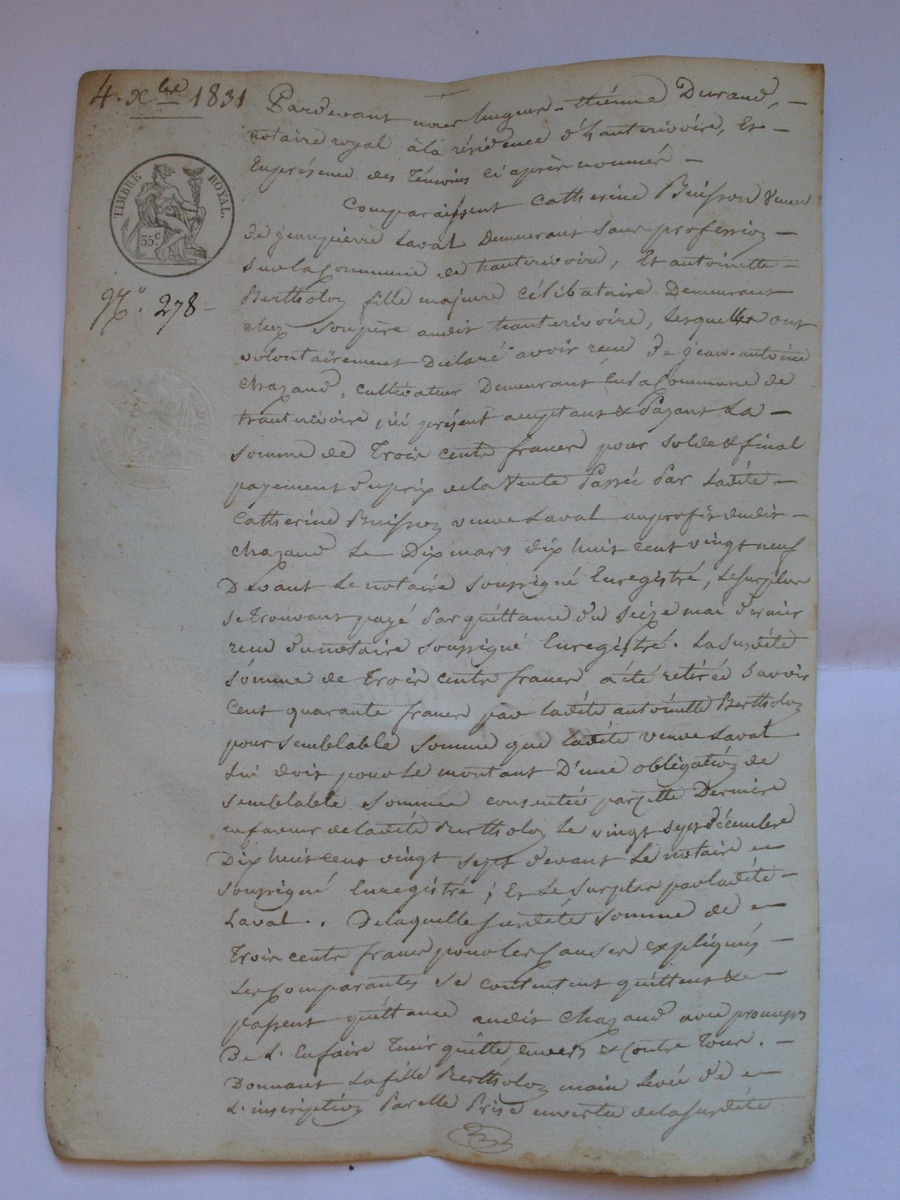 4. Xbre 1831
TIMBRE ROYAL.
35 c
N°. 278 -
Pardevant nous hugues-Etienne Durand, -
notaire royal à la résidence d'hauterivoire, Et -
Enprésence des Témoins ci après nommés -
Comparaissent Catherine Buisson Veuve
de jeanpierre Laval Demeurant Sans profession -
Surlacommune de hauterivoire, Et antoinette -
Bertholon fille majeure célibataire Demeurant
chez Sonpère audit hauterivoire, Lesquelles ont
volontairement Déclaré avoir reçu de jean-antoine
Chazaud, cultivateur Demeurant Enlacommune de
hauterivoire, ici présent acceptant & Payant La -
Somme de Trois cents francs pour solde & final
payement duprix delavente Passée Par Ladite -
Catherine Buisson veuve Laval auprofit dudit -
Chazaud Le Dix mars dix huit cent vingt neuf
Devant Le notaire Soussigné Enregistré, Lesurplus
Setrouvant payé Par quittance du Seize mai dernier
reçu dunotaire soussigné Enregistré. Lasusdite
Somme de trois cents francs a été retirée Savoir
Cent quarante francs par Ladite antoinette Bertholon
pour semblable Somme que Ladite veuve Laval
Lui doit pour le montant D'une obligation de
Semblable Somme consentie parcette Dernière
enfaveur deladite Bertholon Le vingt sept décembre
Dix huit cent vingt sept devant Le notaire -
Soussigné Enregistré; Et Le Surplus par Ladite -
Laval.. Delaquelle susdite Somme de -
Trois cents francs pour les causes expliqués -
Les Comparantes se contentent quittent & -
passent quittance audit Chazaud avec promesse
De L'Enfaire Tenir quitte, envers & Contre Tous. -
Donnant Lafille Bertholon main Levée de -
L'inscription Par elle Prise envertu delasusdite